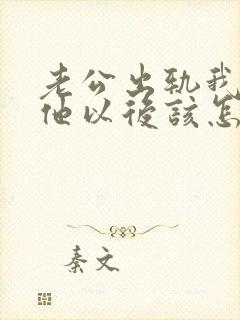 老公出轨我
他以後該怎
秦文